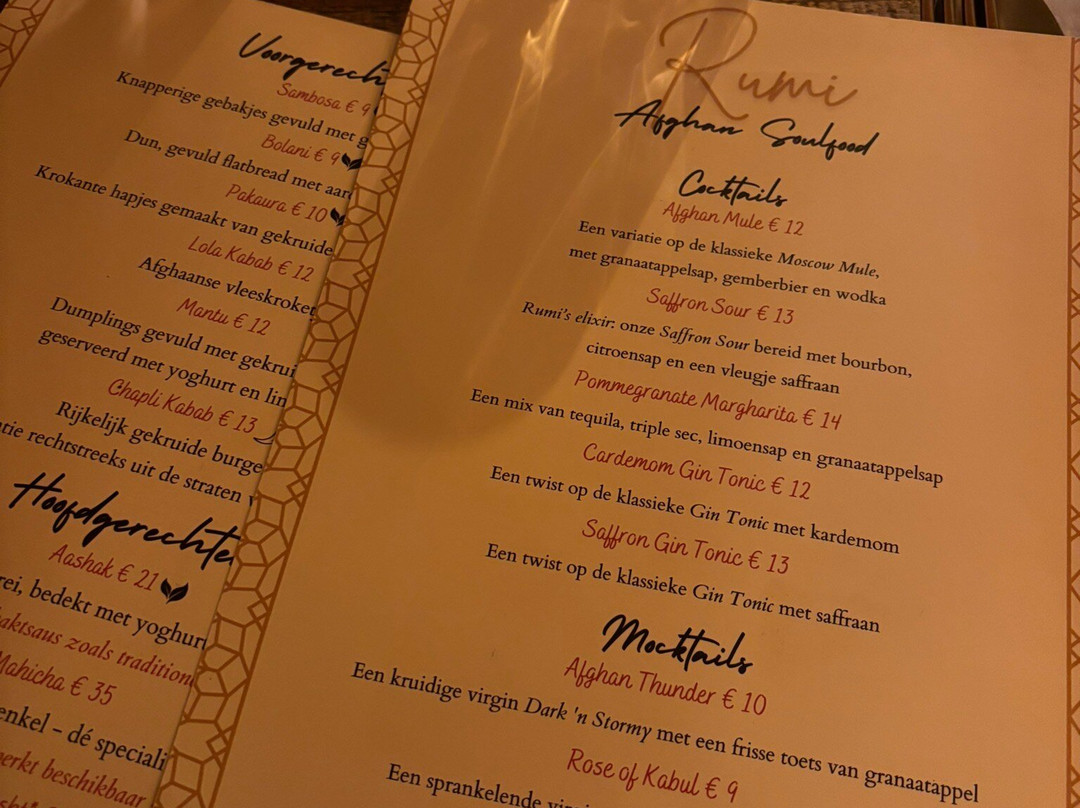 Voorgerech
Sambosa € 9
Knapperige gebakjes gevuld met g
Bolani € 9
Dun, gevuld flatbread met aar
Pakaura € 10
Krokante hapjes gemaakt van gekruide
Lola Kabab € 12
Afghaanse vleeskroket
Mantu € 12
Dumplings gevuld met gekrui
geserveerd met yoghurt en lin
Chapli Kabab € 13
Rijkelijk gekruide burge
tie rechtstreeks uit de straten
Hoofdgerechte
Aashak € 21
rei, bedekt met yoghurt
aktsaus zoals tradition
Mahicha € 35
enkel – dé speciali
erkt beschikbaar
Rumi
Afghan Soulfood
Cocktails
Afghan Mule € 12
Een variatie op de klassieke Moscow Mule,
met granaatappelsap, gemberbier en wodka
Saffron Sour € 13
Rumi's elixir: onze Saffron Sour bereid met bourbon,
citroensap en een vleugje saffraan
Pommegranate Margharita € 14
Een mix van tequila, triple sec, limoensap en granaatappelsap
Cardemom Gin Tonic € 12
Een twist op de klassieke Gin Tonic met kardemom
Saffron Gin Tonic € 13
Een twist op de klassieke Gin Tonic met saffraan
Mocktails
Afghan Thunder € 10
Een kruidige virgin Dark 'n Stormy met een frisse toets van granaatappel
Rose of Kabul € 9
Een sprankelende